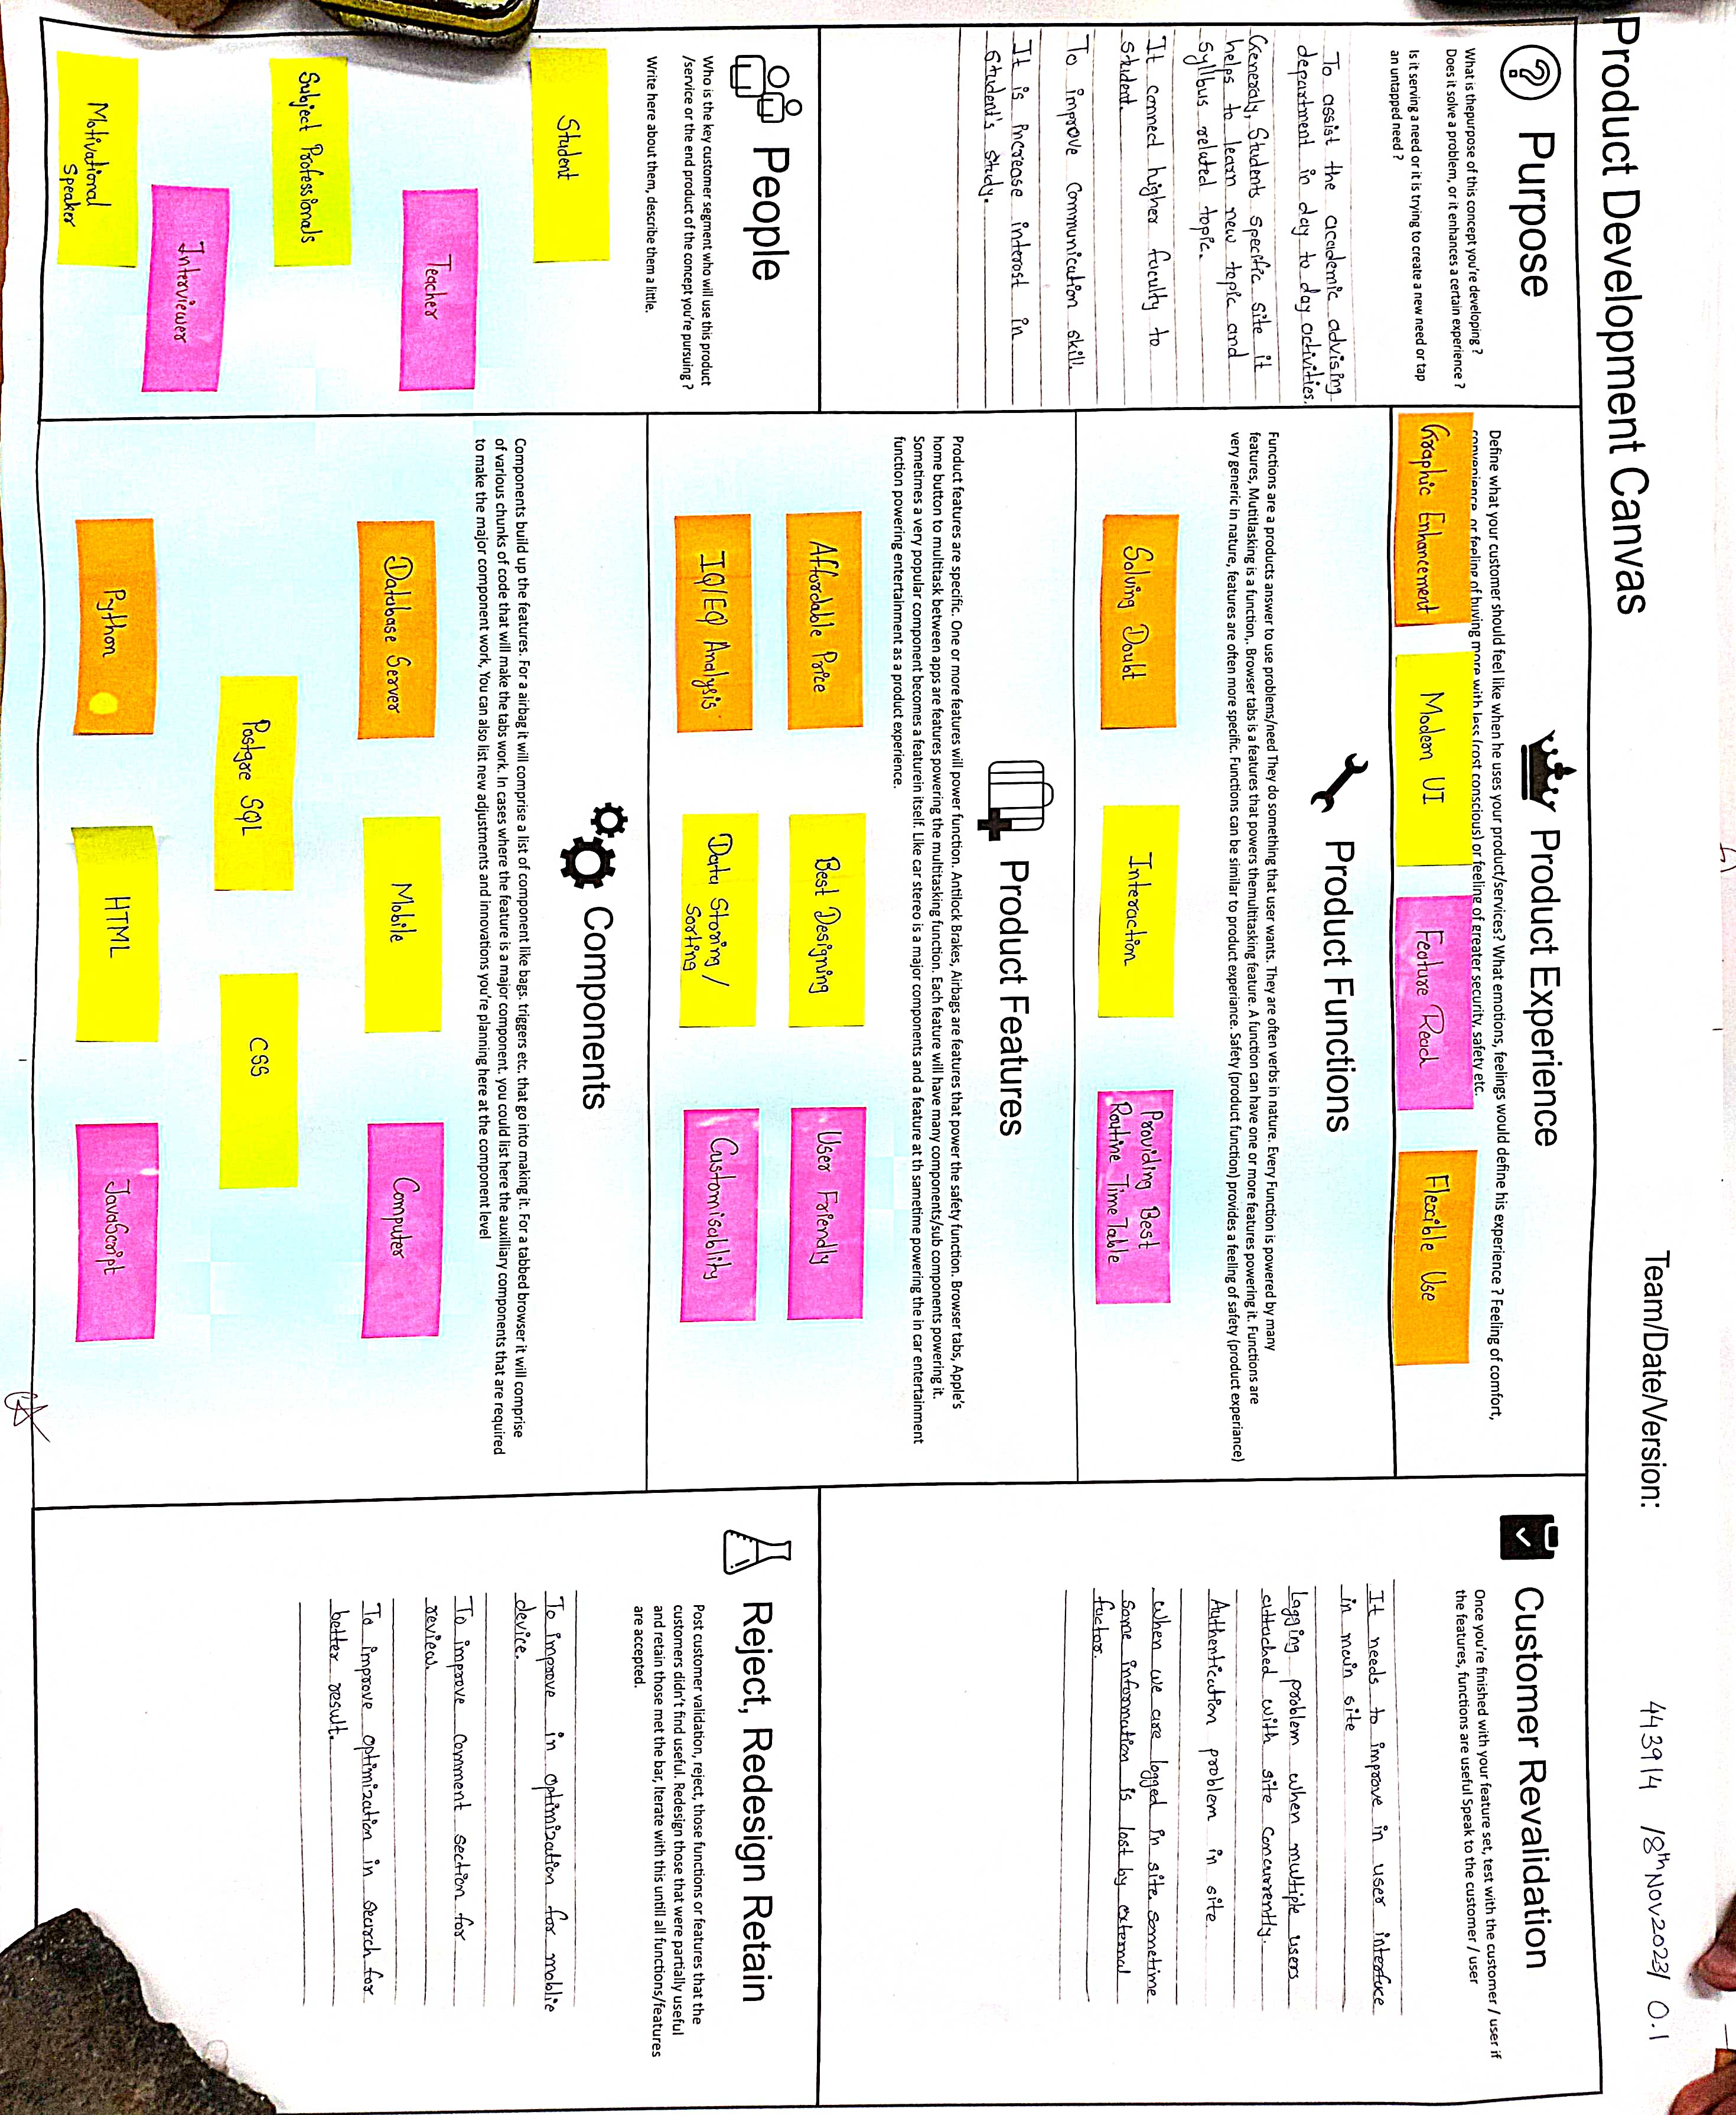 Product Development Canvas
Team/Date/Version:
443914 18th Nov 2023/ 0.1
Purpose
What is thepurpose of this concept you're developing ?
Does it solve a problem, or it enhances a certain experience ?
Is it serving a need or it is trying to create a new need or tap
an untapped need ?
To assist the academic advising
department in day to day activities.
Generaly, Students specific site it
helps to learn new topic and
syllbus related topic.
It conned higher faculty to
student.
To improve communication skill.
It is increase interost in
student's study.
People
Who is the key customer segment who will use this product
/service or the end product of the concept you're pursuing ?
Write here about them, describe them a little.
Student
Teacher
Subject Professionals
Interviewer
Motivational
Speaker
Product Experience
Define what your customer should feel like when he uses your product/services? What emotions, feelings would define his experience ? Feeling of comfort,
convenience, or feeling of buying more with less (cost conscious) or feeling of greater security, safety etc.
Graphic Enhancement
Modern UI
Feature Read
Flexible Use
Product Functions
Functions are a products answer to use problems/need They do something that user wants. They are often verbs in nature. Every Function is powered by many
features, Mutitlasking is a function,. Browser tabs is a features that powers themultitasking feature. A function can have one or more features powering it. Functions are
very generic in nature, features are often more specific. Functions can be similar to product experiance. Safety (product function) provides a feeling of safety (product experiance)
Solving Doubt
Interaction
Providing Best
Routine Time Table
Product Features
Product features are specific. One or more features will power function. Antilock Brakes, Airbags are features that power the safety function. Browser tabs, Apple's
home button to multitask between apps are features powering the multitasking function. Each feature will have many components/sub components powering it.
Sometimes a very popular component becomes a featurein itself. Like car stereo is a major components and a feature at th sametime powering the in car entertainment
function powering entertainment as a product experience.
Affordable Price
Best Designing
User Friendly
IQ/EQ Analysis
Data Storing /
Sorting
Customisablity
Components
Components build up the features. For a airbag it will comprise a list of component like bags. triggers etc. that go into making it. For a tabbed browser it will comprise
of various chunks of code that will make the tabs work. In cases where the feature is a major component. you could list here the auxilliary components that are required
to make the major component work, You can also list new adjustments and innovations you're planning here at the component level
Database Server
Mobile
Computer
Postgre SQL
CSS
Python
HTML
JavaScript
Customer Revalidation
Once you're finished with your feature set, test with the customer / user if
the features, functions are useful Speak to the customer / user
It needs to improve in user interface
in main site
Lagging problem when multiple users
attached with site concurrently.
Authentication problem in site
when we are logged in site. sometime
some information is lost by external
factor.
Reject, Redesign Retain
Post customer validation, reject, those functions or features that the
customers didn't find useful. Redesign those that were partially useful
and retain those met the bar, Iterate with this untill all functions/features
are accepted.
To improve in optimization for moblie
device.
To improve comment section for
review.
To improve optimization in search for
better result.